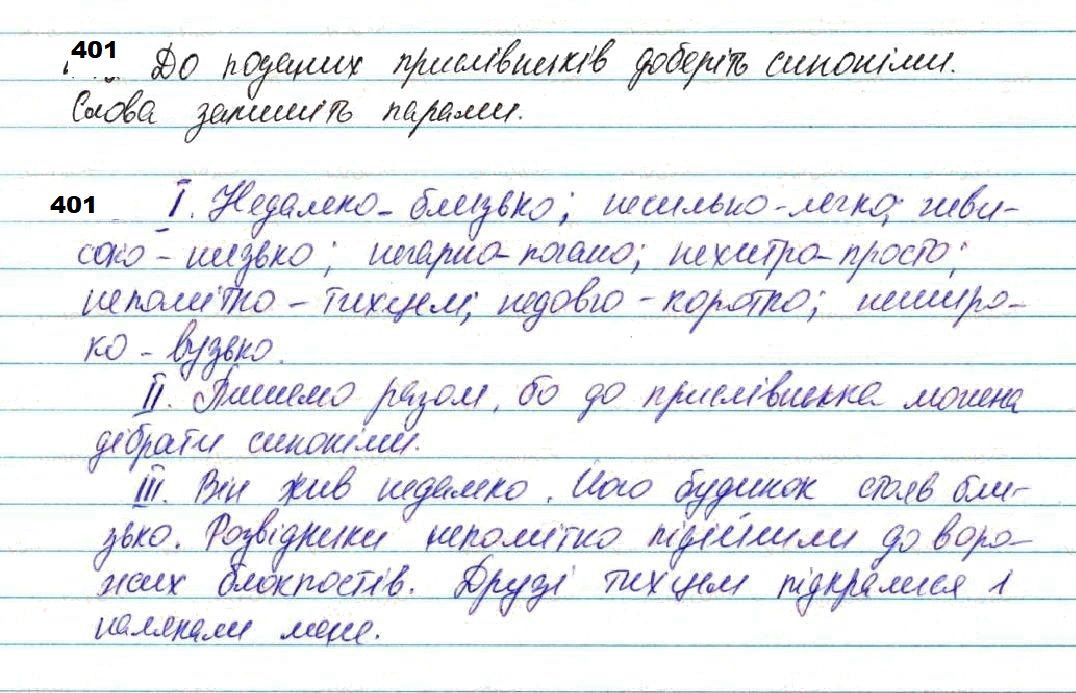 401 До поданих прислівників доберіть синоніми.
Слова запишіть парами.
401 І. Недалеко - близько; несильно - легко; неви-
соко - низько; негарно - погано; нехитро - просто;
непомітно - тихцем; недовго - коротко; неширо-
ко - вузько.
ІІ. Пишемо разом, бо до прислівника можна
дібрати синоніми.
ІІІ. Він жив недалеко. Його будинок стояв бли-
зько. Розвідники непомітно підійшли до воро-
жих блокпостів. Друзі тихцем підкралися і
налякали мене.